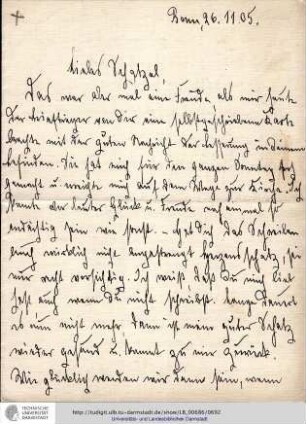 Bonn, 26.11.05.
Liebes Schatzel,
Das war aber mal eine Freude, als mir heute
der Briefträger von dir eine selbstgeschriebene Karte
brachte mit der guten Nachricht der Besserung in deinem
Befinden. Sie hat mich für den ganzen Sonntag
gemacht u. mich auf dem Wege zur Kirche. Ich
konnte vor lauter Glück u. Freude noch einmal so
andächtig sein wie sonst. – Hat dich das Schreiben
auch wirklich nicht angestrengt Herzensschatz, sei
nur recht vorsichtig. Ich weiß daß du mich lieb
hast auch wenn du nicht schreibst. Lange dauert
es nun nicht mehr dann ist mein guter Schatz
wieder gesund u. kommt zu mir zurück.
Wie glücklich werden wir dann sein, wenn
TECHNISCHE UNIVERSITÄT DARMSTADT
Universitäts- und Landesbibliothek Darmstadt